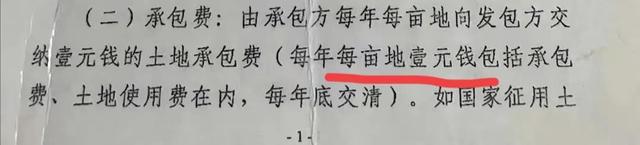 （二）承包费：由承包方每年每亩地向发包方交
纳壹元钱的土地承包费（每年每亩地壹元钱包括承包
费、土地使用费在内，每年底交清）。如国家征用土
-1-